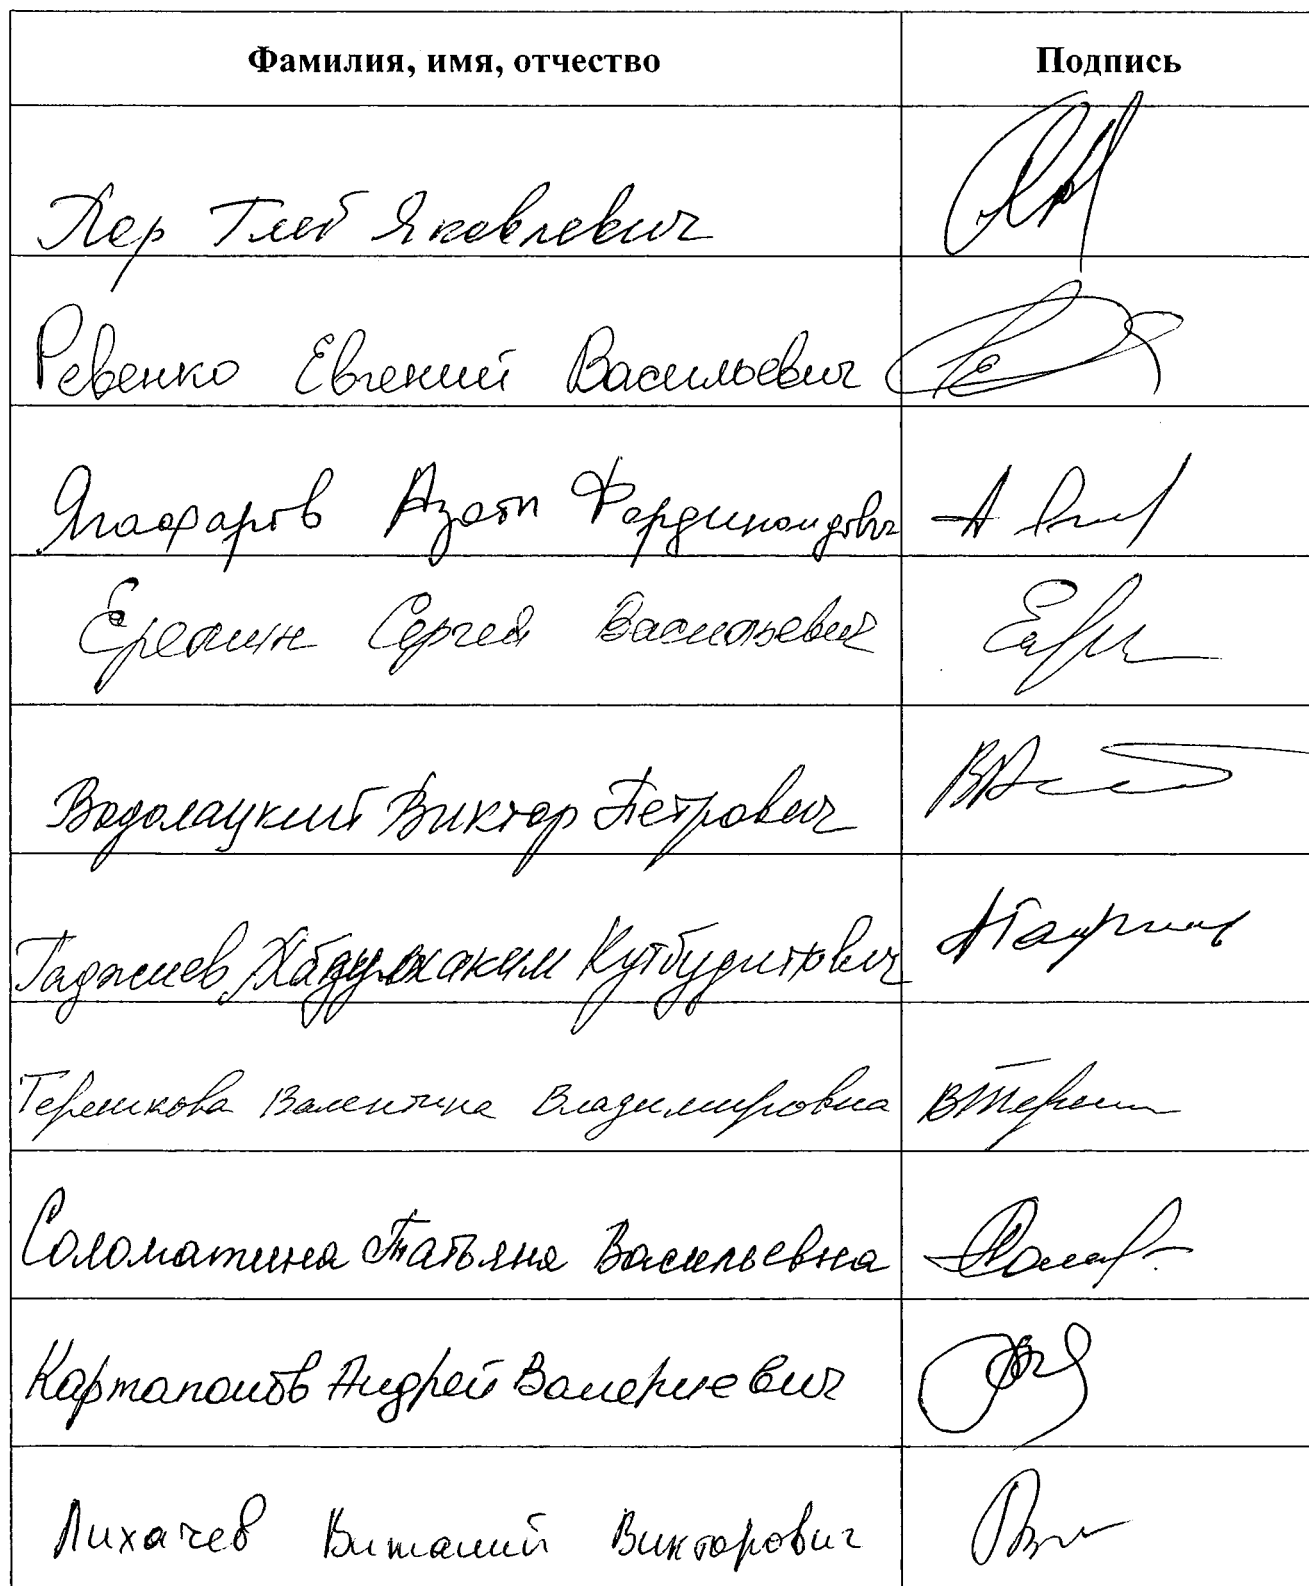 Фамилия, имя, отчество Подпись
Хор Глеб Яковлевич
Ревенко Евгений Васильевич
Ягафаров Азат Фердинандович
Еремин Сергей Васильевич
Водолацкий Виктор Петрович
Гаджиев Абдулхаким Кутбудинович
Терешкова Валентина Владимировна
Соломатина Татьяна Васильевна
Картаполов Андрей Валериевич
Лихачев Виталий Викторович